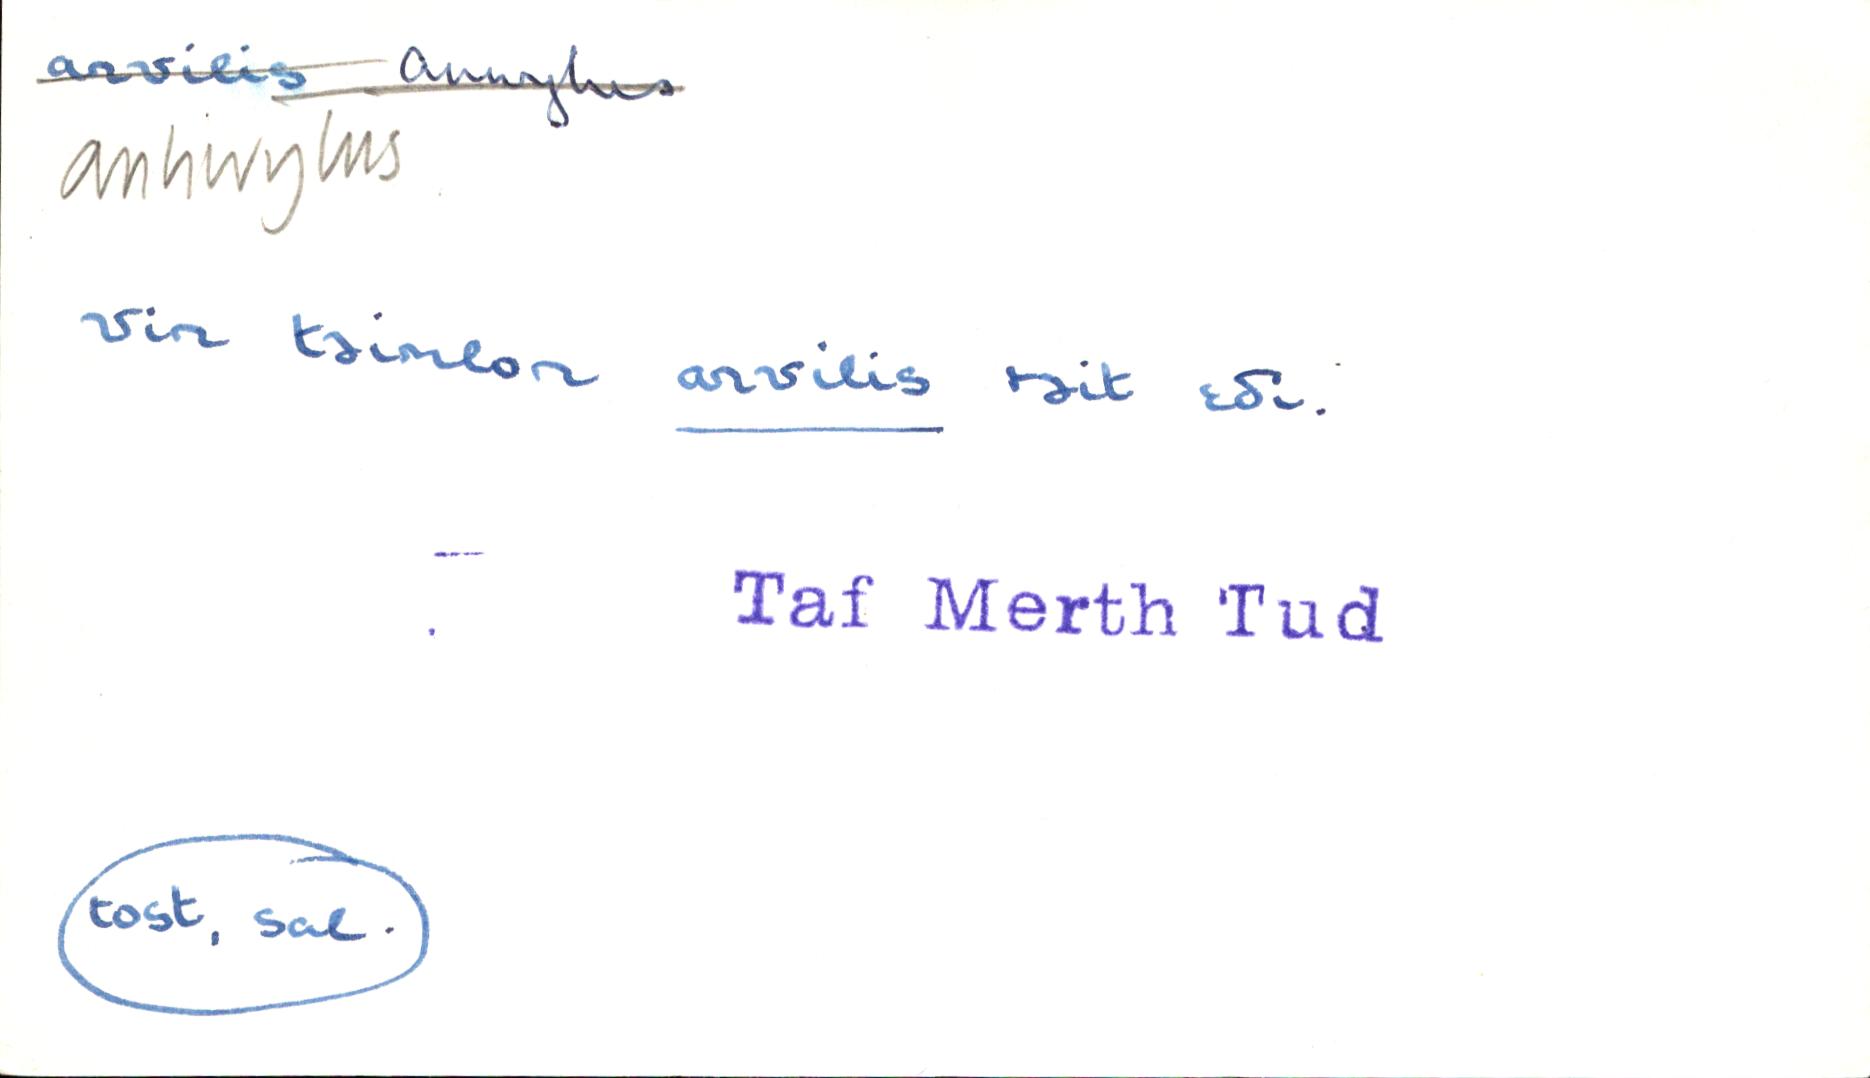 arvilis anwylus
anhwylus
vin teimlon arvilis
Taf Merth Tud
tost, sal.